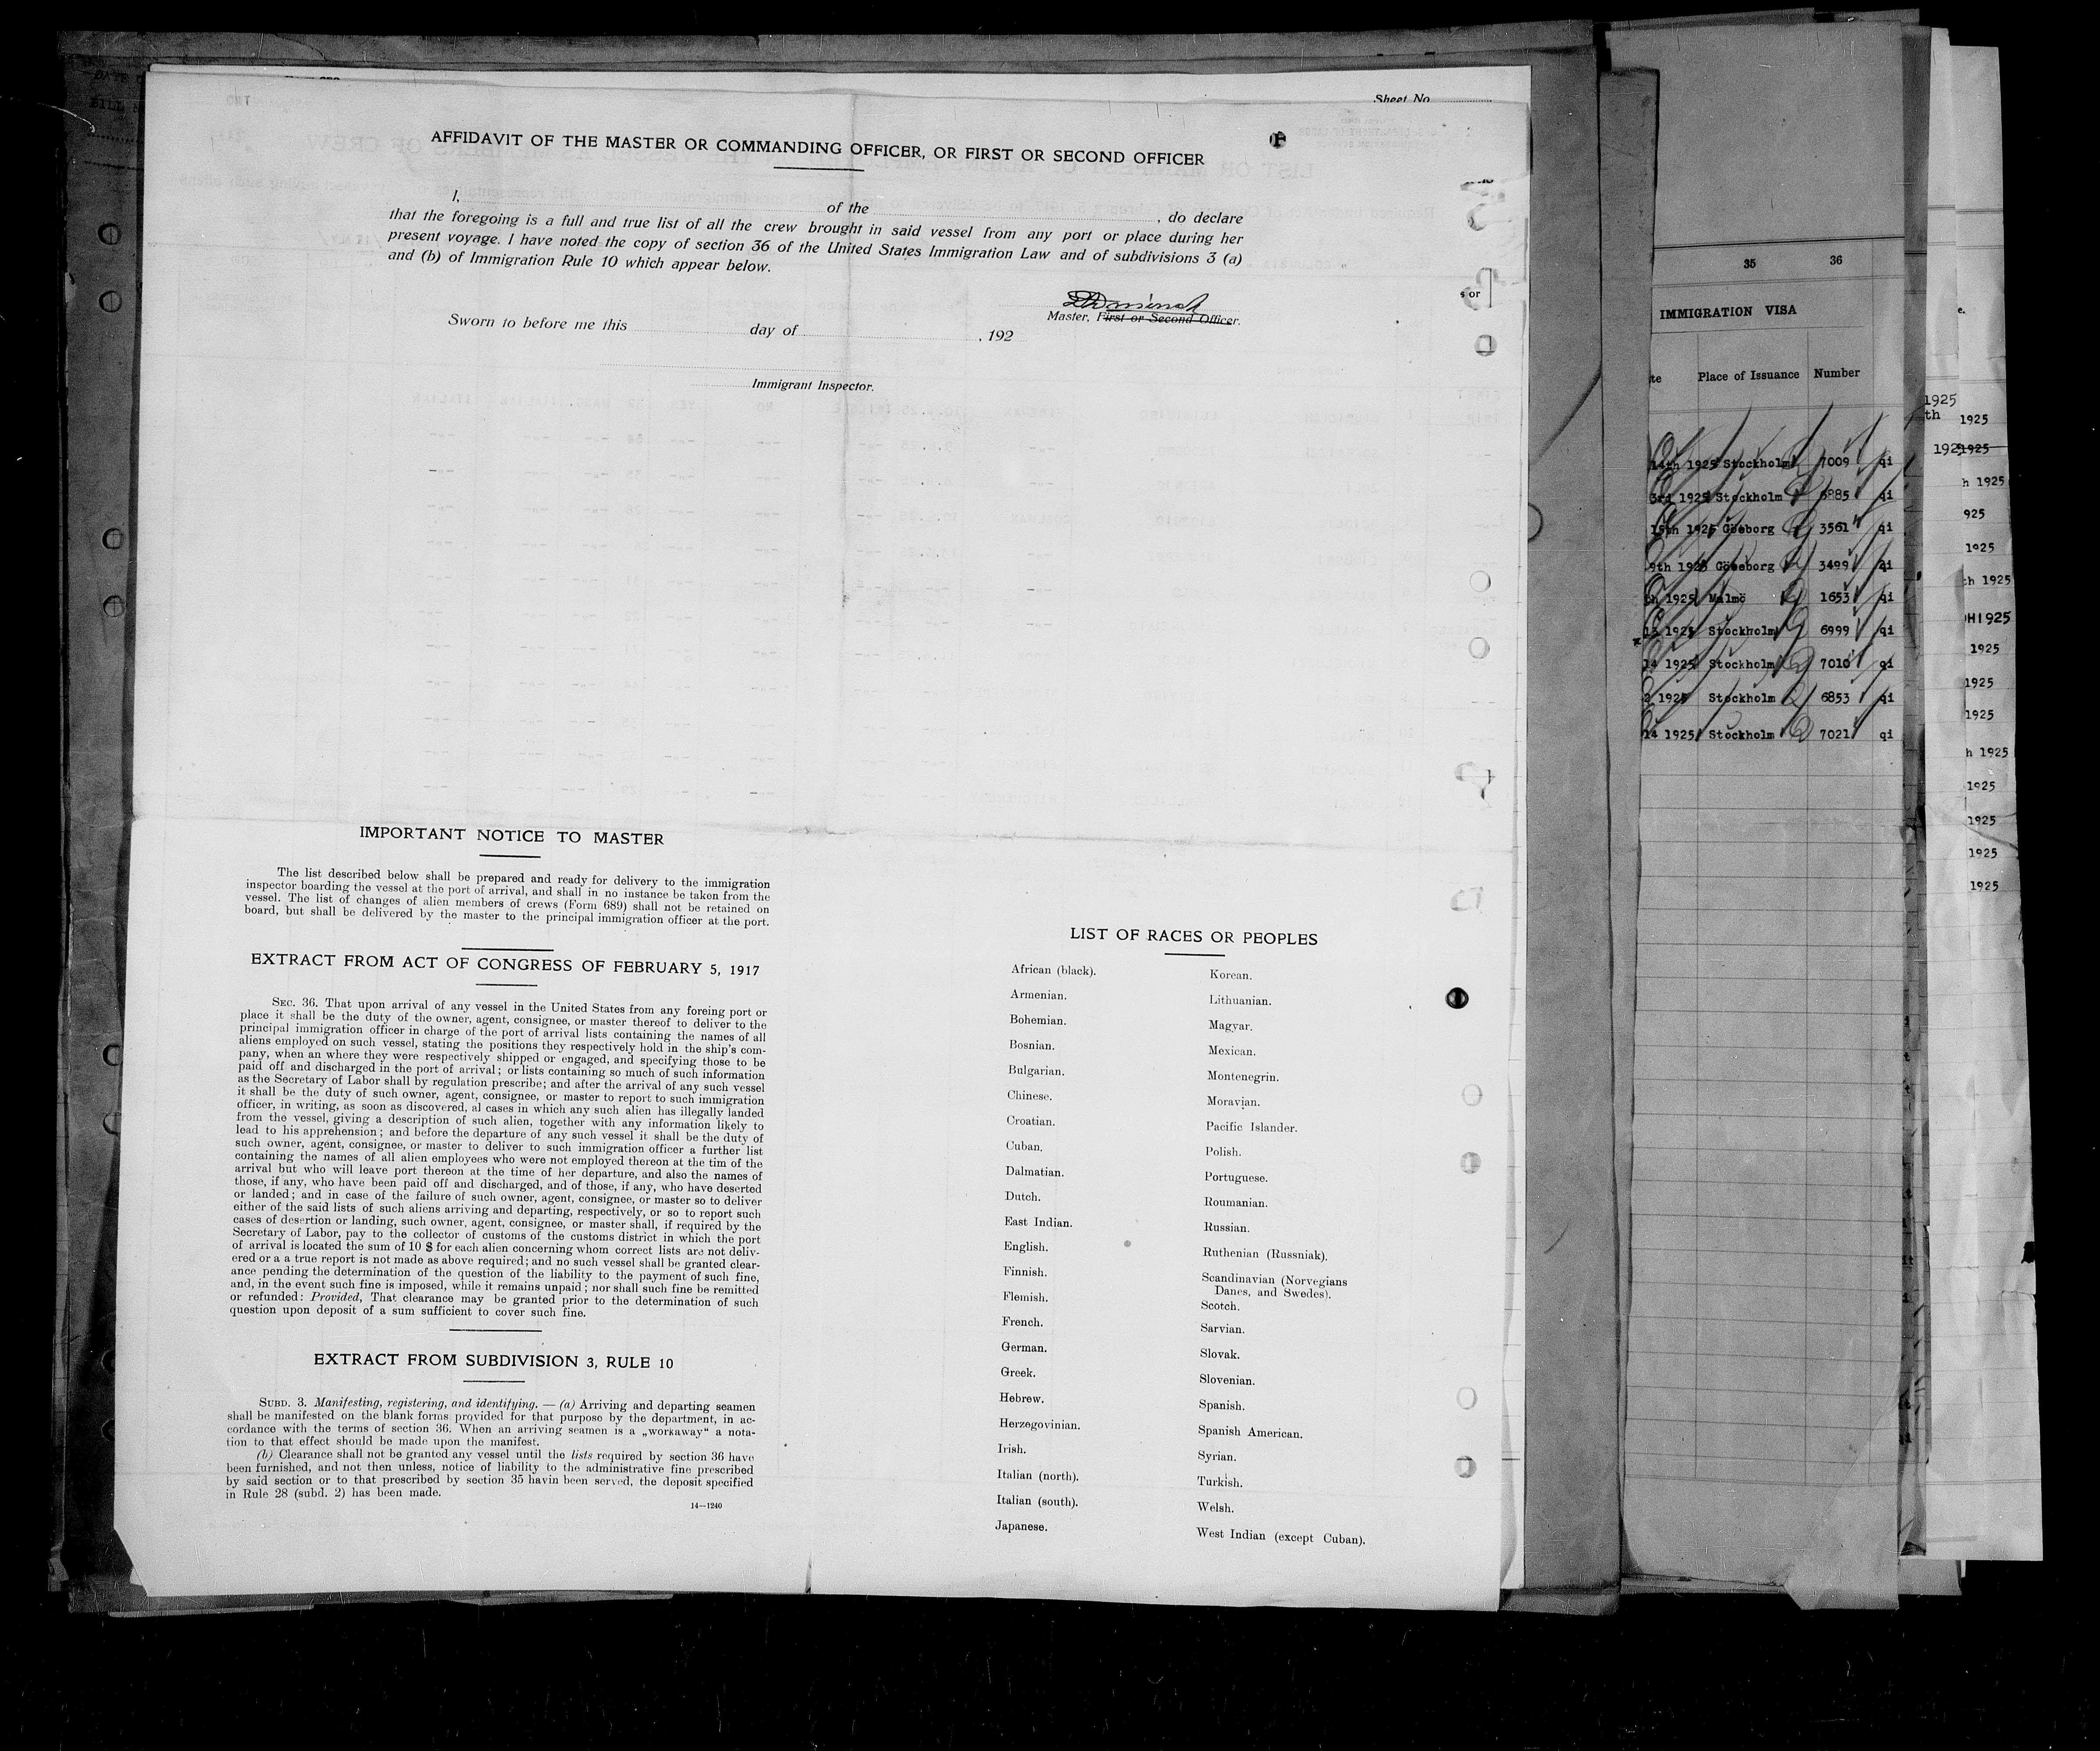 Sheet No.
AFFIDAVIT OF THE MASTER OR COMMANDING OFFICER, OR FIRST OR SECOND OFFICER
I, of the , do declare
that the foregoing is a full and true list of all the crew brought in said vessel from any port or place during her
present voyage. I have noted the copy of section 36 of the United States Immigration Law and of subdivisions 3 (a)
and (b) of Immigration Rule 10 which appear below.
Master, First or Second Officer.
Sworn to before me this day of , 192
Immigrant Inspector.
IMPORTANT NOTICE TO MASTER
The list described below shall be prepared and ready for delivery to the immigration
inspector boarding the vessel at the port of arrival, and shall in no instance be taken from the
vessel. The list of changes of alien members of crews (Form 689) shall not be retained on
board, but shall be delivered by the master to the principal immigration officer at the port.
EXTRACT FROM ACT OF CONGRESS OF FEBRUARY 5, 1917
SEC. 36. That upon arrival of any vessel in the United States from any foreing port or
place it shall be the duty of the owner, agent, consignee, or master thereof to deliver to the
principal immigration officer in charge of the port of arrival lists containing the names of all
aliens employed on such vessel, stating the positions they respectively hold in the ship's com-
pany, when an where they were respectively shipped or engaged, and specifying those to be
paid off and discharged in the port of arrival; or lists containing so much of such information
as the Secretary of Labor shall by regulation prescribe; and after the arrival of any such vessel
it shall be the duty of such owner, agent, consignee, or master to report to such immigration
officer, in writing, as soon as discovered, al cases in which any such alien has illegally landed
from the vessel, giving a description of such alien, together with any information likely to
lead to his apprehension; and before the departure of any such vessel it shall be the duty of
such owner, agent, consignee, or master to deliver to such immigration officer a further list
containing the names of all alien employees who were not employed thereon at the tim of the
arrival but who will leave port thereon at the time of her departure, and also the names of
those, if any, who have been paid off and discharged, and of those, if any, who have deserted
or landed; and in case of the failure of such owner, agent, consignee, or master so to deliver
either of the said lists of such aliens arriving and departing, respectively, or so to report such
cases of desertion or landing, such owner, agent, consignee, or master shall, if required by the
Secretary of Labor, pay to the collector of customs of the customs district in which the port
of arrival is located the sum of 10 $ for each alien concerning whom correct lists are not deliv-
ered or a a true report is not made as above required; and no such vessel shall be granted clear-
ance pending the determination of the question of the liability to the payment of such fine,
and, in the event such fine is imposed, while it remains unpaid; nor shall such fine be remitted
or refunded: Provided, That clearance may be granted prior to the determination of such
question upon deposit of a sum sufficient to cover such fine.
EXTRACT FROM SUBDIVISION 3, RULE 10
SUBD. 3. Manifesting, registering, and identifying. — (a) Arriving and departing seamen
shall be manifested on the blank forms provided for that purpose by the department, in ac-
cordance with the terms of section 36. When an arriving seamen is a „workaway“ a nota-
tion to that effect should be made upon the manifest.
(b) Clearance shall not be granted any vessel until the lists required by section 36 have
been furnished, and not then unless, notice of liability to the administrative fine prescribed
by said section or to that prescribed by section 35 havin been served, the deposit specified
in Rule 28 (subd. 2) has been made.
14—1240
LIST OF RACES OR PEOPLES
African (black).
Armenian.
Bohemian.
Bosnian.
Bulgarian.
Chinese.
Croatian.
Cuban.
Dalmatian.
Dutch.
East Indian.
English.
Finnish.
Flemish.
French.
German.
Greek.
Hebrew.
Herzegovinian.
Irish.
Italian (north).
Italian (south).
Japanese.
Korean.
Lithuanian.
Magyar.
Mexican.
Montenegrin.
Moravian.
Pacific Islander.
Polish.
Portuguese.
Roumanian.
Russian.
Ruthenian (Russniak).
Scandinavian (Norvegians
Danes, and Swedes).
Scotch.
Sarvian.
Slovak.
Slovenian.
Spanish.
Spanish American.
Syrian.
Turkish.
Welsh.
West Indian (except Cuban).
s or
35 36
IMMIGRATION VISA
te Place of Issuance Number
14th 1925 Stockholm 7009 qi
3rd 1925 Stockholm 6885 qi
15th 1925 Göeborg 3561 qi
9th 1925 Göeborg 3499 qi
th 1925 Malmö 1653 qi
13 1925 Stockholm 6999 qi
14 1925 Stockholm 7010 qi
2 1925 Stockholm 6853 qi
14 1925 Stockholm 7021 qi
e.
1925
th 1925
1925
h 1925
925
1925
th 1925
H1925
1925
1925
1925
h 1925
1925
1925
1925
1925